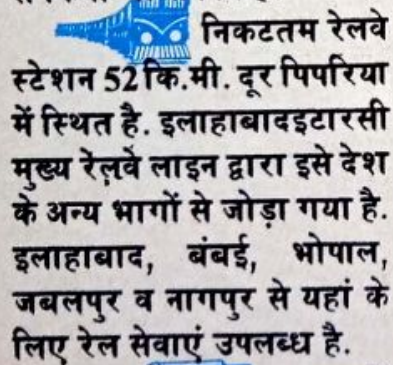 निकटतम रेलवे
स्टेशन 52 कि.मी. दूर पिपरिया
में स्थित है. इलाहाबादइटारसी
मुख्य रेलवे लाइन द्वारा इसे देश
के अन्य भागों से जोड़ा गया है.
इलाहाबाद, बंबई, भोपाल,
जबलपुर व नागपुर से यहां के
लिए रेल सेवाएं उपलब्ध है.